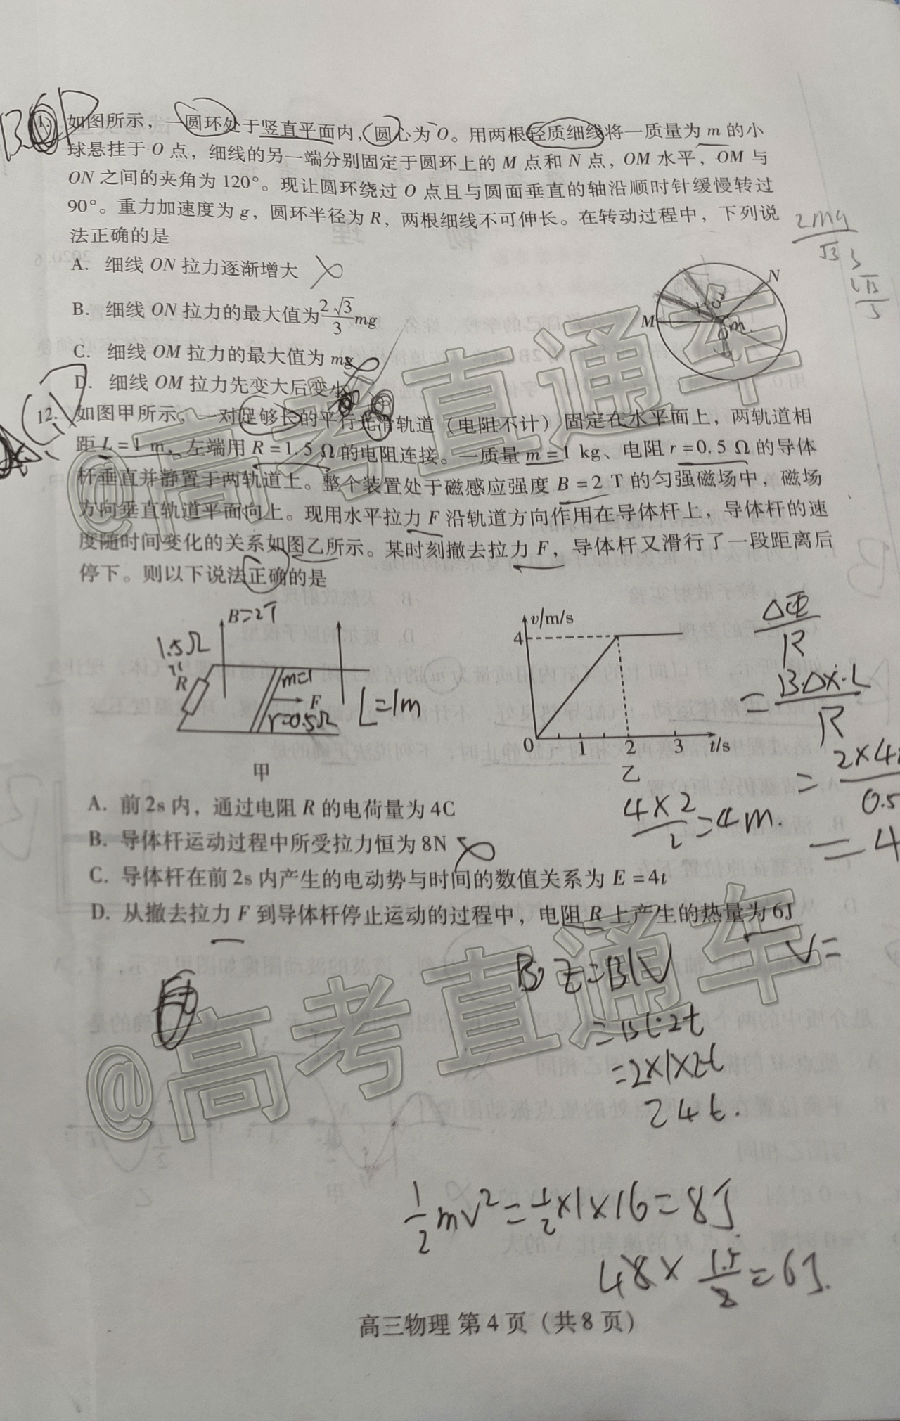 如图所示，一圆环处于竖直平面内，圆心为O。用两根轻质细线将一质量为m的小
球悬挂于O点，细线的另一端分别固定于圆环上的M点和N点，OM水平，OM与
ON之间的夹角为120°。现让圆环绕过O点且与圆面垂直的轴沿顺时针缓慢转过
90°。重力加速度为g，圆环半径为R，两根细线不可伸长。在转动过程中，下列说
法正确的是
A. 细线ON拉力逐渐增大
B. 细线ON拉力的最大值为2√3/3mg
C. 细线OM拉力的最大值为mg
D. 细线OM拉力先变大后变小
M N m
2mg
√3
12. 如图甲所示，一对足够长的平行光滑轨道（电阻不计）固定在水平面上，两轨道相
距L=1 m，左端用R=1.5 Ω的电阻连接。一质量m=1 kg、电阻r=0.5 Ω的导体
杆垂直并静置于两轨道上。整个装置处于磁感应强度B=2 T的匀强磁场中，磁场
方向垂直轨道平面向上。现用水平拉力F沿轨道方向作用在导体杆上，导体杆的速
度随时间变化的关系如图乙所示。某时刻撤去拉力F，导体杆又滑行了一段距离后
停下。则以下说法正确的是
B=2T
1.5Ω
R m=1 F
r=0.5Ω L=1m
甲
v/m/s
4
0 1 2 3 t/s
乙
ΔΦ
R
=B·Δx·L
R
4×2
2
=4m.
A. 前2s内，通过电阻R的电荷量为4C
B. 导体杆运动过程中所受拉力恒为8N
C. 导体杆在前2s内产生的电动势与时间的数值关系为E=4t
D. 从撤去拉力F到导体杆停止运动的过程中，电阻R上产生的热量为6J
=2×1×2t
24t.
½mv²=½×1×16=8J
48×1.5/8=6J.
高三物理 第4页（共8页）
@高考直通车
@高考直通车